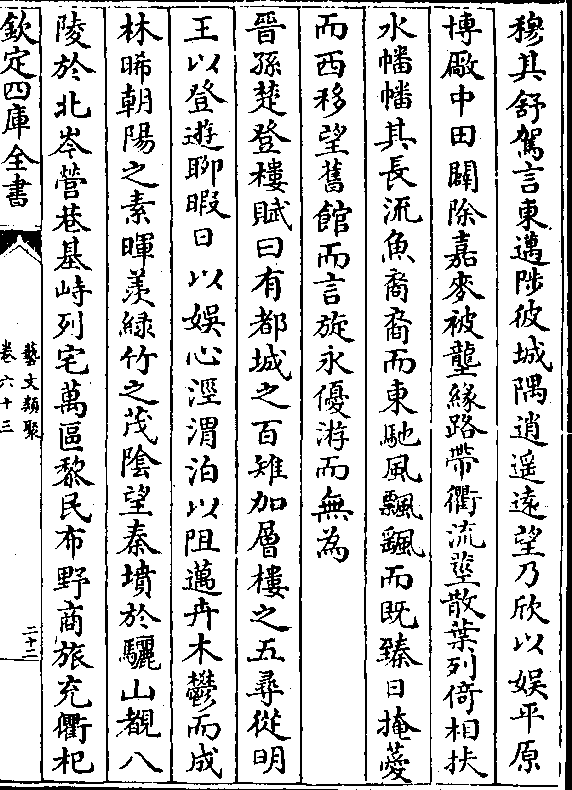 穆其舒駕言東邁陟彼城隅逍遥遠望乃欣以娛平原
博敞中田闢除嘉麥被壟緣路帶衢流莖散葉列倚相扶
水幡幡其長流魚裔裔而東馳風飄飄而既臻日掩薆
而西移望舊館而言旋永優游而無為
晉孫楚登樓賦曰有都城之百雉加層樓之五尋從明
王以登遊聊暇日以娛心涇渭泊以阻邁卉木鬱而成
林晞朝陽之素暉羡綠竹之茂陰望秦墳於驪山覩八
陵於北岑營巷基峙列宅萬區黎民布野商旅充衢杞
欽定四庫全書
藝文類聚
卷六十三
二十二